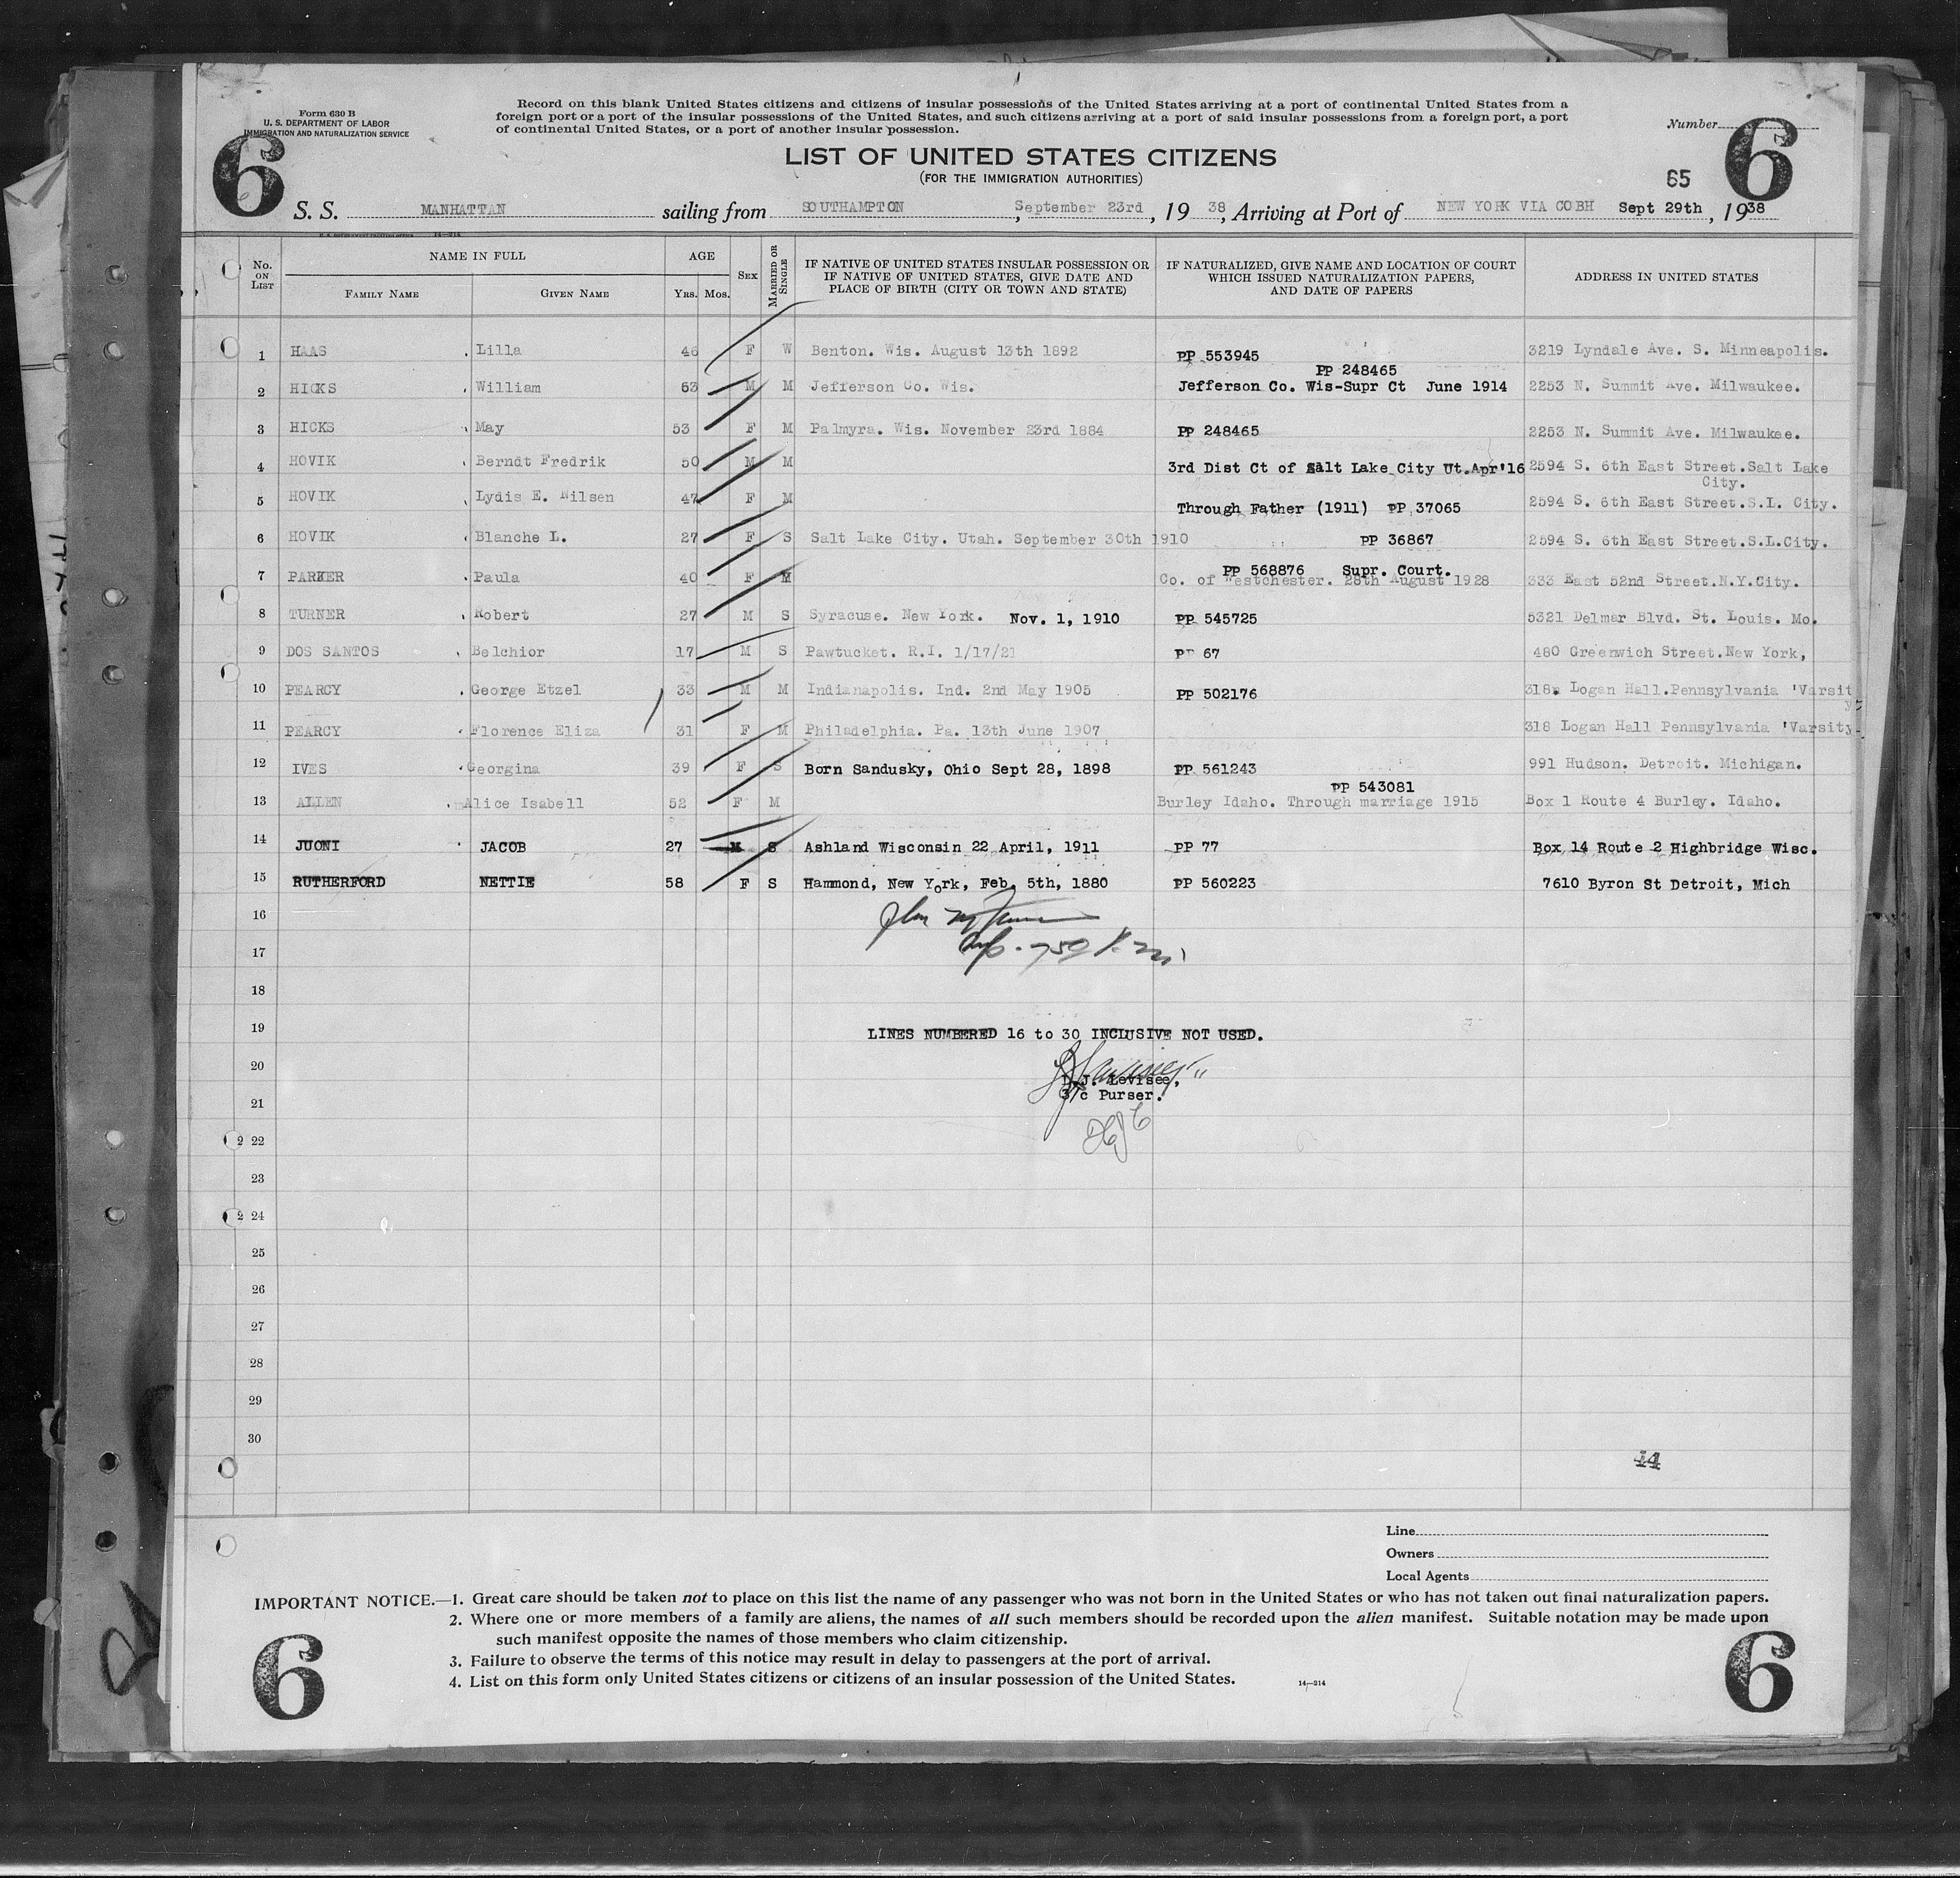 Form 630 B
U. S. DEPARTMENT OF LABOR
IMMIGRATION AND NATURALIZATION SERVICE
Record on this blank United States citizens and citizens of insular possessions of the United States arriving at a port of continental United States from a
foreign port or a port of the insular possessions of the United States, and such citizens arriving at a port of said insular possessions from a foreign port, a port
of continental United States, or a port of another insular possession.
Number
6 6
LIST OF UNITED STATES CITIZENS
(FOR THE IMMIGRATION AUTHORITIES)
65
S. S. MANHATTAN sailing from SOUTHAMPTON, September 23rd, 19 38, Arriving at Port of NEW YORK VIA COBH Sept 29th, 1938
14—214
No. ON LIST NAME IN FULL AGE SEX MARRIED OR SINGLE IF NATIVE OF UNITED STATES INSULAR POSSESSION OR IF NATIVE OF UNITED STATES, GIVE DATE AND PLACE OF BIRTH (CITY OR TOWN AND STATE) IF NATURALIZED, GIVE NAME AND LOCATION OF COURT WHICH ISSUED NATURALIZATION PAPERS, AND DATE OF PAPERS ADDRESS IN UNITED STATES
FAMILY NAME GIVEN NAME YRS. MOS.
1 HAAS Lilla 46 F W Benton. Wis. August 13th 1892 PP 553945 3219 Lyndale Ave. S. Minneapolis.
PP 248465
2 HICKS William 63 M M Jefferson Co. Wis. Jefferson Co. Wis-Supr Ct June 1914 2253 N. Summit Ave. Milwaukee.
3 HICKS May 53 F M Palmyra. Wis. November 23rd 1884 PP 248465 2253 N. Summit Ave. Milwaukee.
4 HOVIK Berndt Fredrik 50 M M 3rd Dist Ct of Salt Lake City Ut.Apr'16 2594 S. 6th East Street.Salt Lake
City.
5 HOVIK Lydis E. Nilsen 47 F M Through Father (1911) PP 37065 2594 S. 6th East Street.S.L. City.
6 HOVIK Blanche L. 27 F S Salt Lake City. Utah. September 30th 1910 PP 36867 2594 S. 6th East Street.S.L.City.
PP 568876 Supr. Court.
7 PARKER Paula 40 F M Co. of Westchester. 28th August 1928 333 East 52nd Street.N.Y.City.
8 TURNER Robert 27 M S Syracuse. New York. Nov. 1, 1910 PP 545725 5321 Delmar Blvd. St. Louis. Mo.
9 DOS SANTOS Belchior 17 M S Pawtucket. R.I. 1/17/21 PP 67 480 Greenwich Street.New York,
10 PEARCY George Etzel 33 M M Indianapolis. Ind. 2nd May 1905 PP 502176 318 Logan Hall.Pennsylvania 'Varsit
y.
11 PEARCY Florence Eliza 31 F M Philadelphia. Pa. 13th June 1907 318 Logan Hall Pennsylvania 'Varsity
12 IVES Georgina 39 F S Born Sandusky, Ohio Sept 28, 1898 PP 561243 991 Hudson. Detroit. Michigan.
PP 543081
13 ALLEN Alice Isabell 52 F M Burley Idaho. Through marriage 1915 Box 1 Route 4 Burley. Idaho.
14 JUONI JACOB 27 M S Ashland Wisconsin 22 April, 1911 PP 77 Box 14 Route 2 Highbridge Wisc.
15 RUTHERFORD NETTIE 58 F S Hammond, New York, Feb. 5th, 1880 PP 560223 7610 Byron St Detroit, Mich
16
17
18
19 LINES NUMBERED 16 to 30 INCLUSIVE NOT USED.
20
L.J. Levisee,
3/c Purser.
21
22
23
24
25
26
27
28
29
30
44
Line
Owners
Local Agents
IMPORTANT NOTICE.—1. Great care should be taken not to place on this list the name of any passenger who was not born in the United States or who has not taken out final naturalization papers.
2. Where one or more members of a family are aliens, the names of all such members should be recorded upon the alien manifest. Suitable notation may be made upon
such manifest opposite the names of those members who claim citizenship.
3. Failure to observe the terms of this notice may result in delay to passengers at the port of arrival.
4. List on this form only United States citizens or citizens of an insular possession of the United States. 14—214
6 6